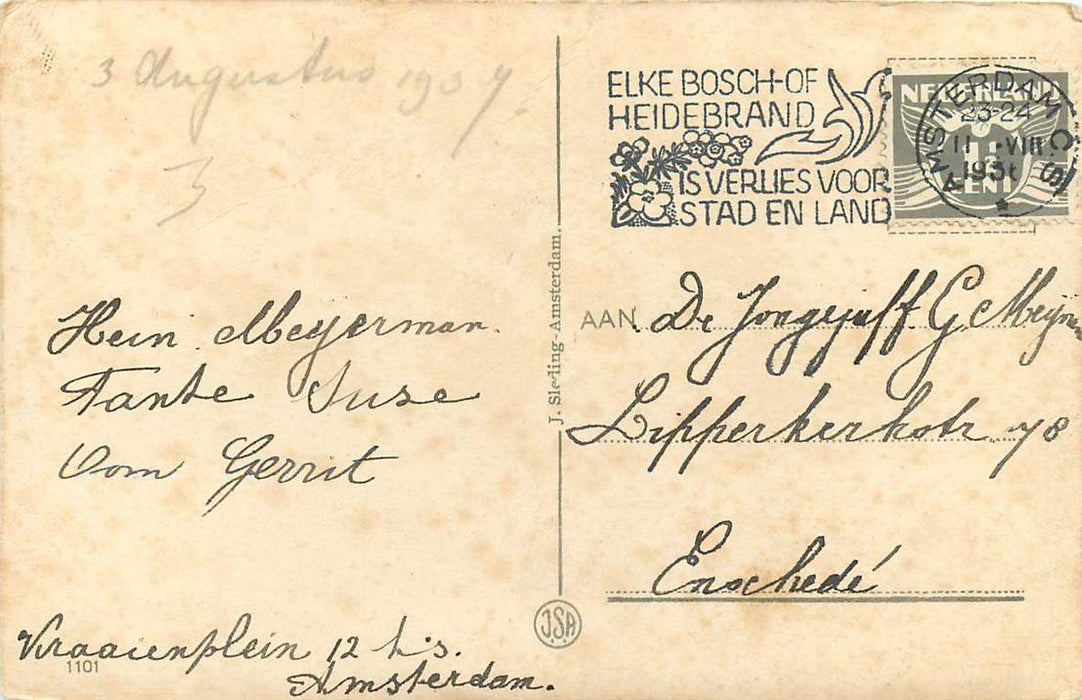 3 Augustus 1937.
3
ELKE BOSCH- OF
HEIDEBRAND
IS VERLIES VOOR
STAD EN LAND
NEDERLAND
CENT
AMSTERDAM C.S.
23-24
11 VIII
193
Hein Meyerman.
Tante Suse
Oom Gerrit
Kraaienplein 12 hs.
Amsterdam.
1101
J. Sleding-Amsterdam.
JSA
AAN De Jongejuff. G
Lipperkerkstr. 78
Enschedé